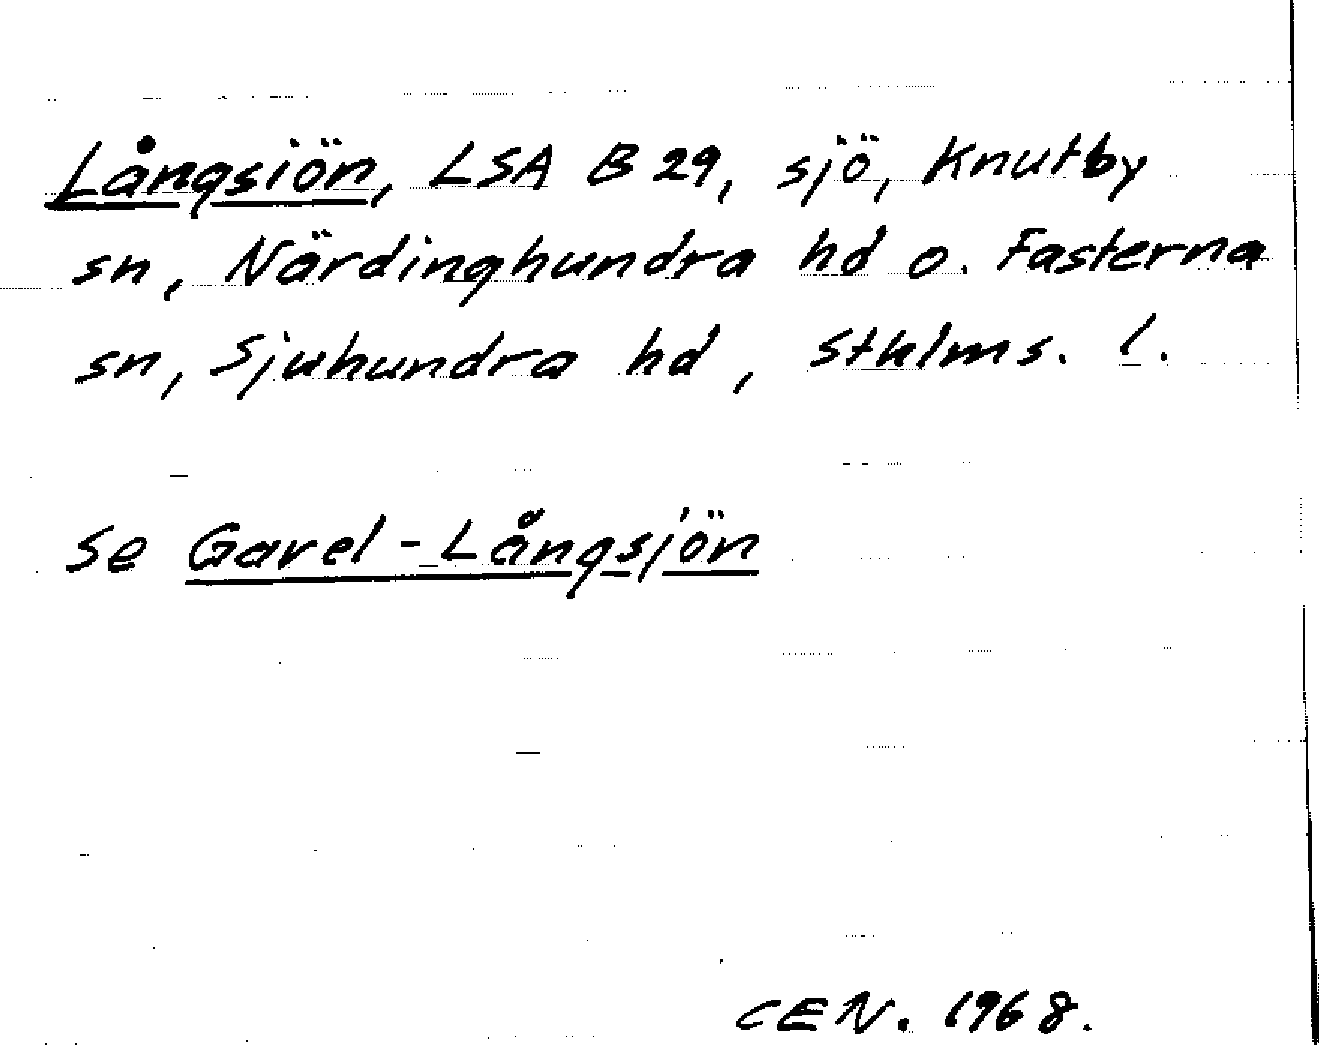 Långsiön, LSA B 29, sjö, Knutby
sn, Närdinghundra hd o. Fasterna
sn, Sjuhundra hd, Sthlms. l.
Se Garel-Långsjön
CEN. 1968.